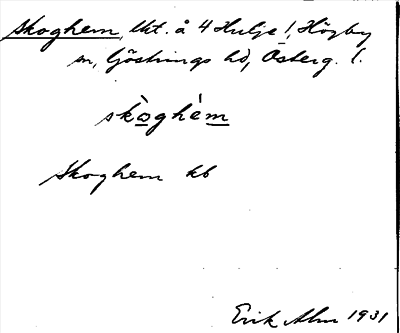 Skoghem, lht. å 4 Hulje !, Högby
sn, Göstrings hd, Österg. l.
sko̱ghe̱m
Skoghem kb
Erik Alm 1931